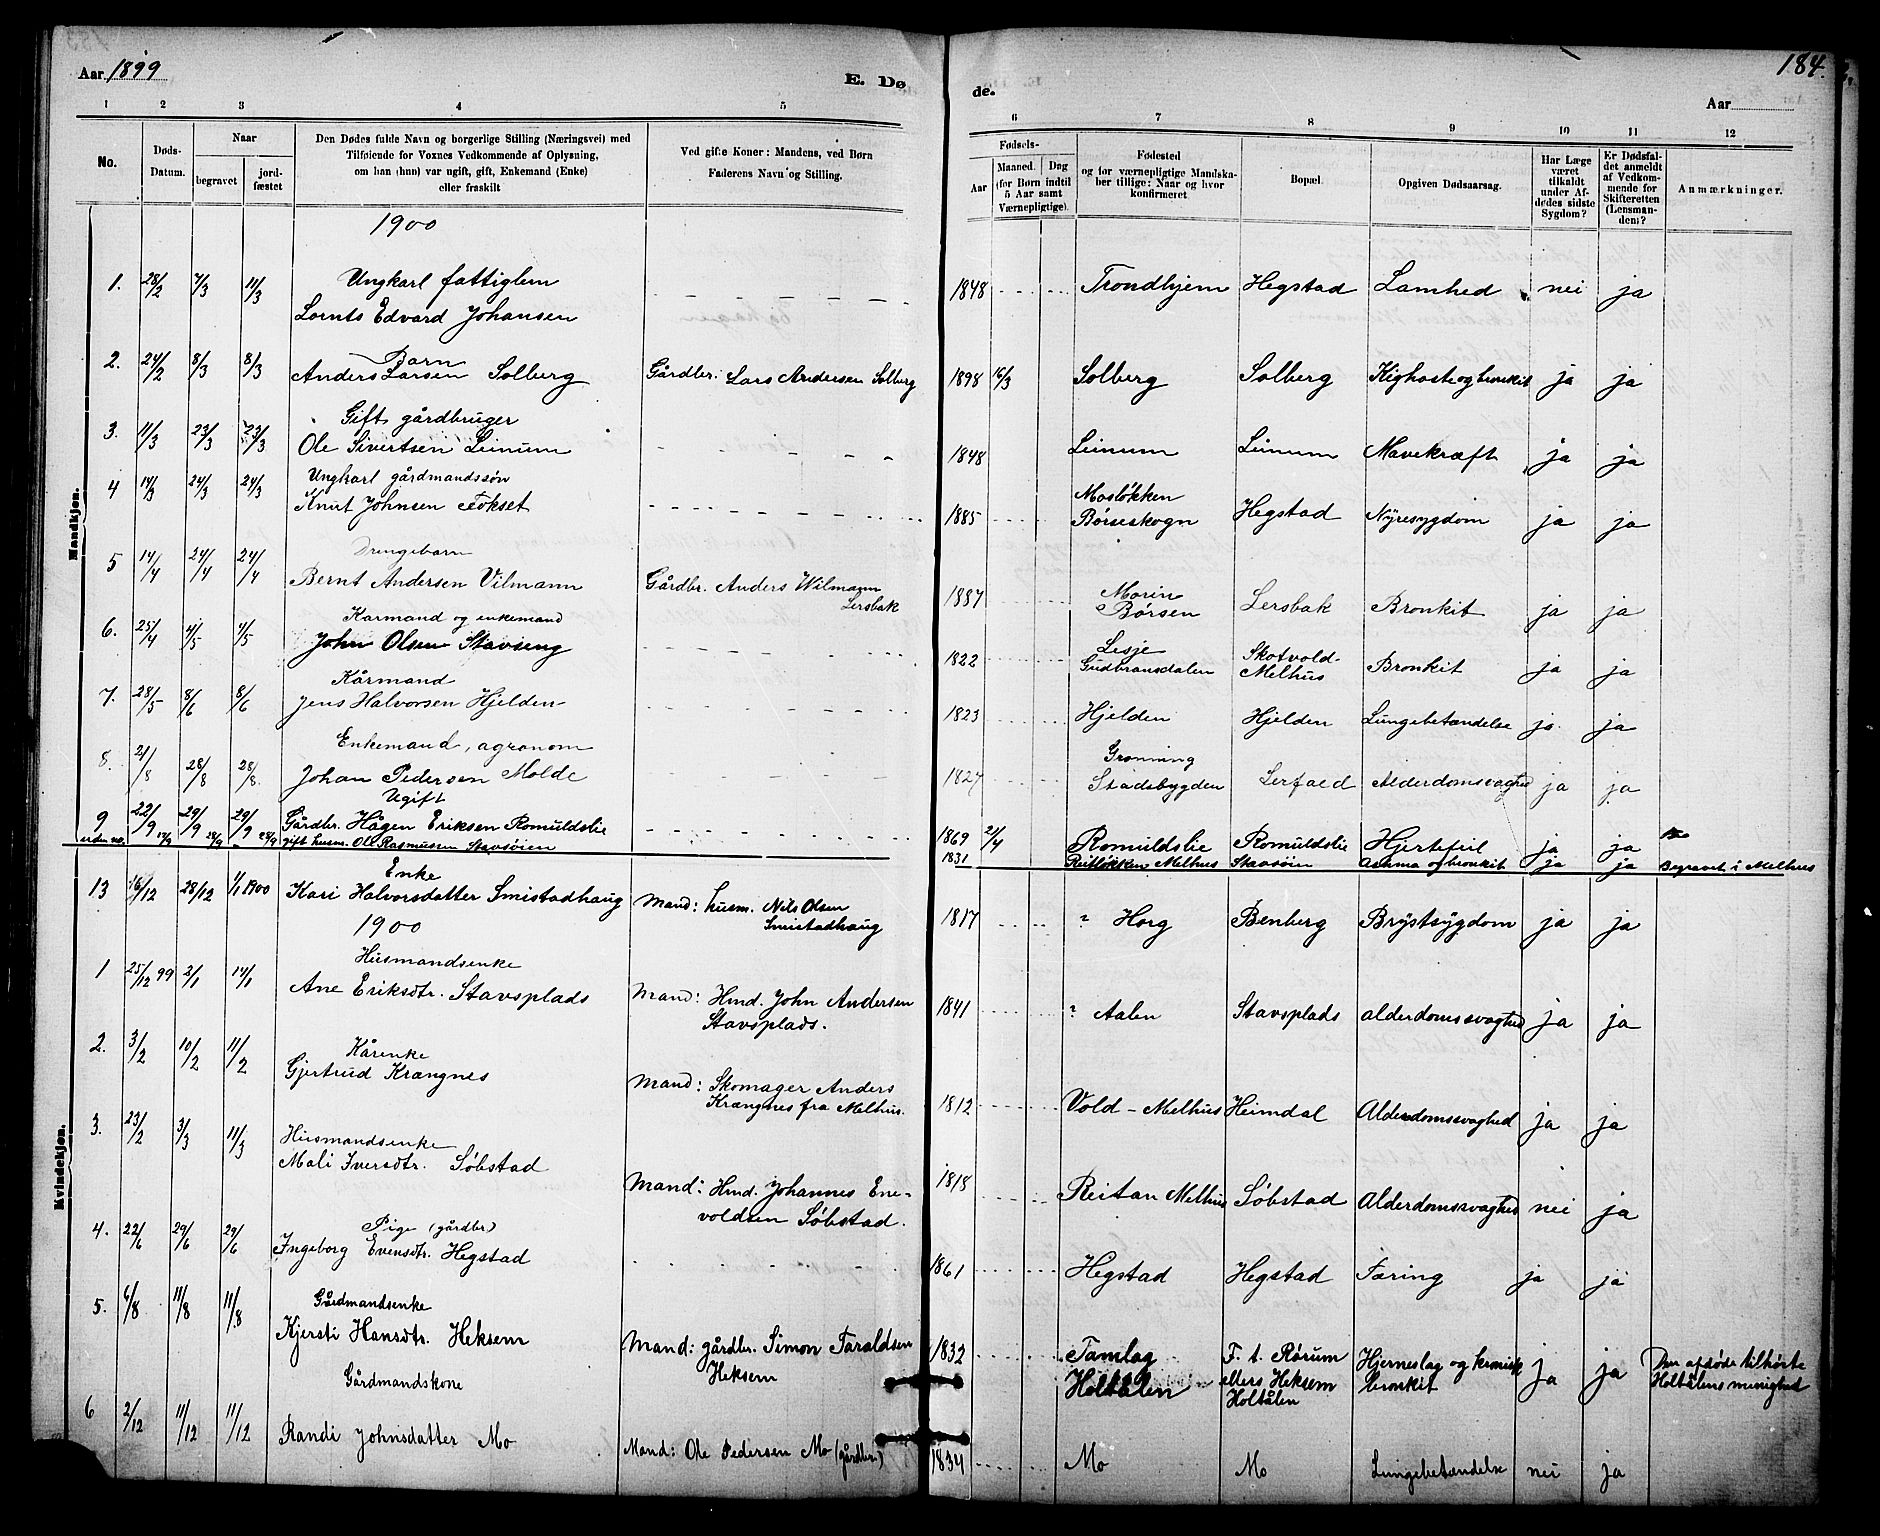 Aar 1899
E. Dø
de.
184.
Aar
1 2 3 4 5 6 7 8 9 10 11 12
No.
Døds-Datum.
Naar
begravet
jord-fæstet
Den Dødes fulde Navn og borgerlige Stilling (Næringsvei) med
Tilføiende for Voxnes Vedkommende af Oplysning,
om han (hun) var ugift, gift, Enkemand (Enke)
eller fraskilt
Ved gifte Koner: Mandens, ved Børn
Faderens Navn og Stilling.
Fødsels-
Aar
Maaned. Dag
(for Børn indtil
5 Aar samt
Værnepligtige).
Fødested
og for værnepligtige Mandska-
ber tillige: Naar og hvor
konfirmeret.
Bopæl.
Opgiven Dødsaarsag.
Har Læge
været
tilkaldt
under Af-
dødes sidste
Sygdom?
Er Dødsfal-
det anmeldt
af Vedkom-
mende for
Skifteretten
(Lensman-
den)?
Anmærkninger.
Mandkjøn.
1900
Ungkarl fattiglem
1. 28/2 7/3 11/3 Lornts Edvard Johansen 1848 Trondhjem Hegstad Lamhed nei ja
Barn
2. 24/2 8/3 8/3 Anders Larsen Solberg Gårdbr. Lars Andersen Solberg 1898 16/3 Solberg Solberg Kighoste og bronkit ja ja
Gift gårdbruger
3. 11/3 23/3 23/3 Ole Sivertsen Leinum 1848 Leinum Leinum Mavekræft ja ja
Ungkarl gårdmandssøn
4 14/3 24/3 24/3 Knut Johnsen Fokset 1885 Mosløkken
Børseskogn Hegstad Nyresygdom ja ja
Drengebarn
5 14/4 24/4 24/4 Bernt Andersen Vilmann Gårdbr. Anders Wilmann
Lersbak 1887 Børsen Lersbak Bronkit ja ja
Karmand og enkemand
6. 25/4 4/5 4/5 John Olsen Stavseng 1822 Lesje
Gudbransdalen Skotvold-
Melhus Bronkit ja ja
Kårmand
7. 28/5 8/6 8/6 Jens Halvorsen Hjelden 1823 Hjelden Hjelden Lungebetændelse ja ja
Enkemand, agronom
8. 21/8 28/8 28/8 Johan Pedersen Molde 1827 Grønning
Stadsbygden Lerfald Alderdomssvaghed ja ja
Ugift
9 22/9 29/9 29/9 Gårdbr. Hågen Eriksen Romuldslie 1869 21/4 Romuldslie Romuldslie Hjertefeil ja ja
uden no. 17/9 28/9 28/9 gift husm. Ole Rasmussen Stavsøien 1831 Reitløkken Melhus Stavsøien Astma og bronkit ja ja Begravet i Melhus
Kvindekjøn.
Enke
13 16/12 28/12 1/1 1900 Kari Halvorsdatter Smistadhaug Mand: husm. Nils Olsen
Smistadhaug 1817 ? Horg Benberg Brystsygdom ja ja
1900
Husmandsenke
1 25/12 99 2/1 14/1 Ane Eriksdtr. Stavsplads Mand: Hmd. John Andersen
Stavsplads. 1841 ? Aalen Stavsplads alderdomssvaghed ja ja
Kårenke
2. 3/2 10/2 11/2 Gjertrud Krængnes Mand: Skomager Anders
Krængnes fra Melhus. 1812 Vold - Melhus Heimdal Alderdomssvaghed ja ja
Husmandsenke
3. 23/2 3/3 11/3 Mali Iversdtr. Søbstad Mand: Hmd. Johannes Ene-
voldsen Søbstad. 1818 Reitan Melhus Søbstad Alderdomssvaghed nei ja
Pige (gårdbr)
4. 22/6 29/6 29/6 Ingeborg Evensdtr. Hegstad 1861 Hegstad Hegstad Tæring ja ja
Gårdmandsenke
5. 6/8 11/8 11/8 Kjersti Hansdtr. Heksem Mand: gårdbr. Simon Taraldsen
Heksem 1832 Tamlag
Holtålen F. t. Rørum
ellers Heksem
Holtålen Hjerneslag og kronisk
bronkit ja ja Den afdøde tilhørte
Holtålens menighed
Gårdmandskone
6 2/12 11/12 11/12 Randi Johnsdatter Mo Mand: Ole Pedersen Mo (gårdbr.) 1834 Mo Mo Lungebetændelse nei ja